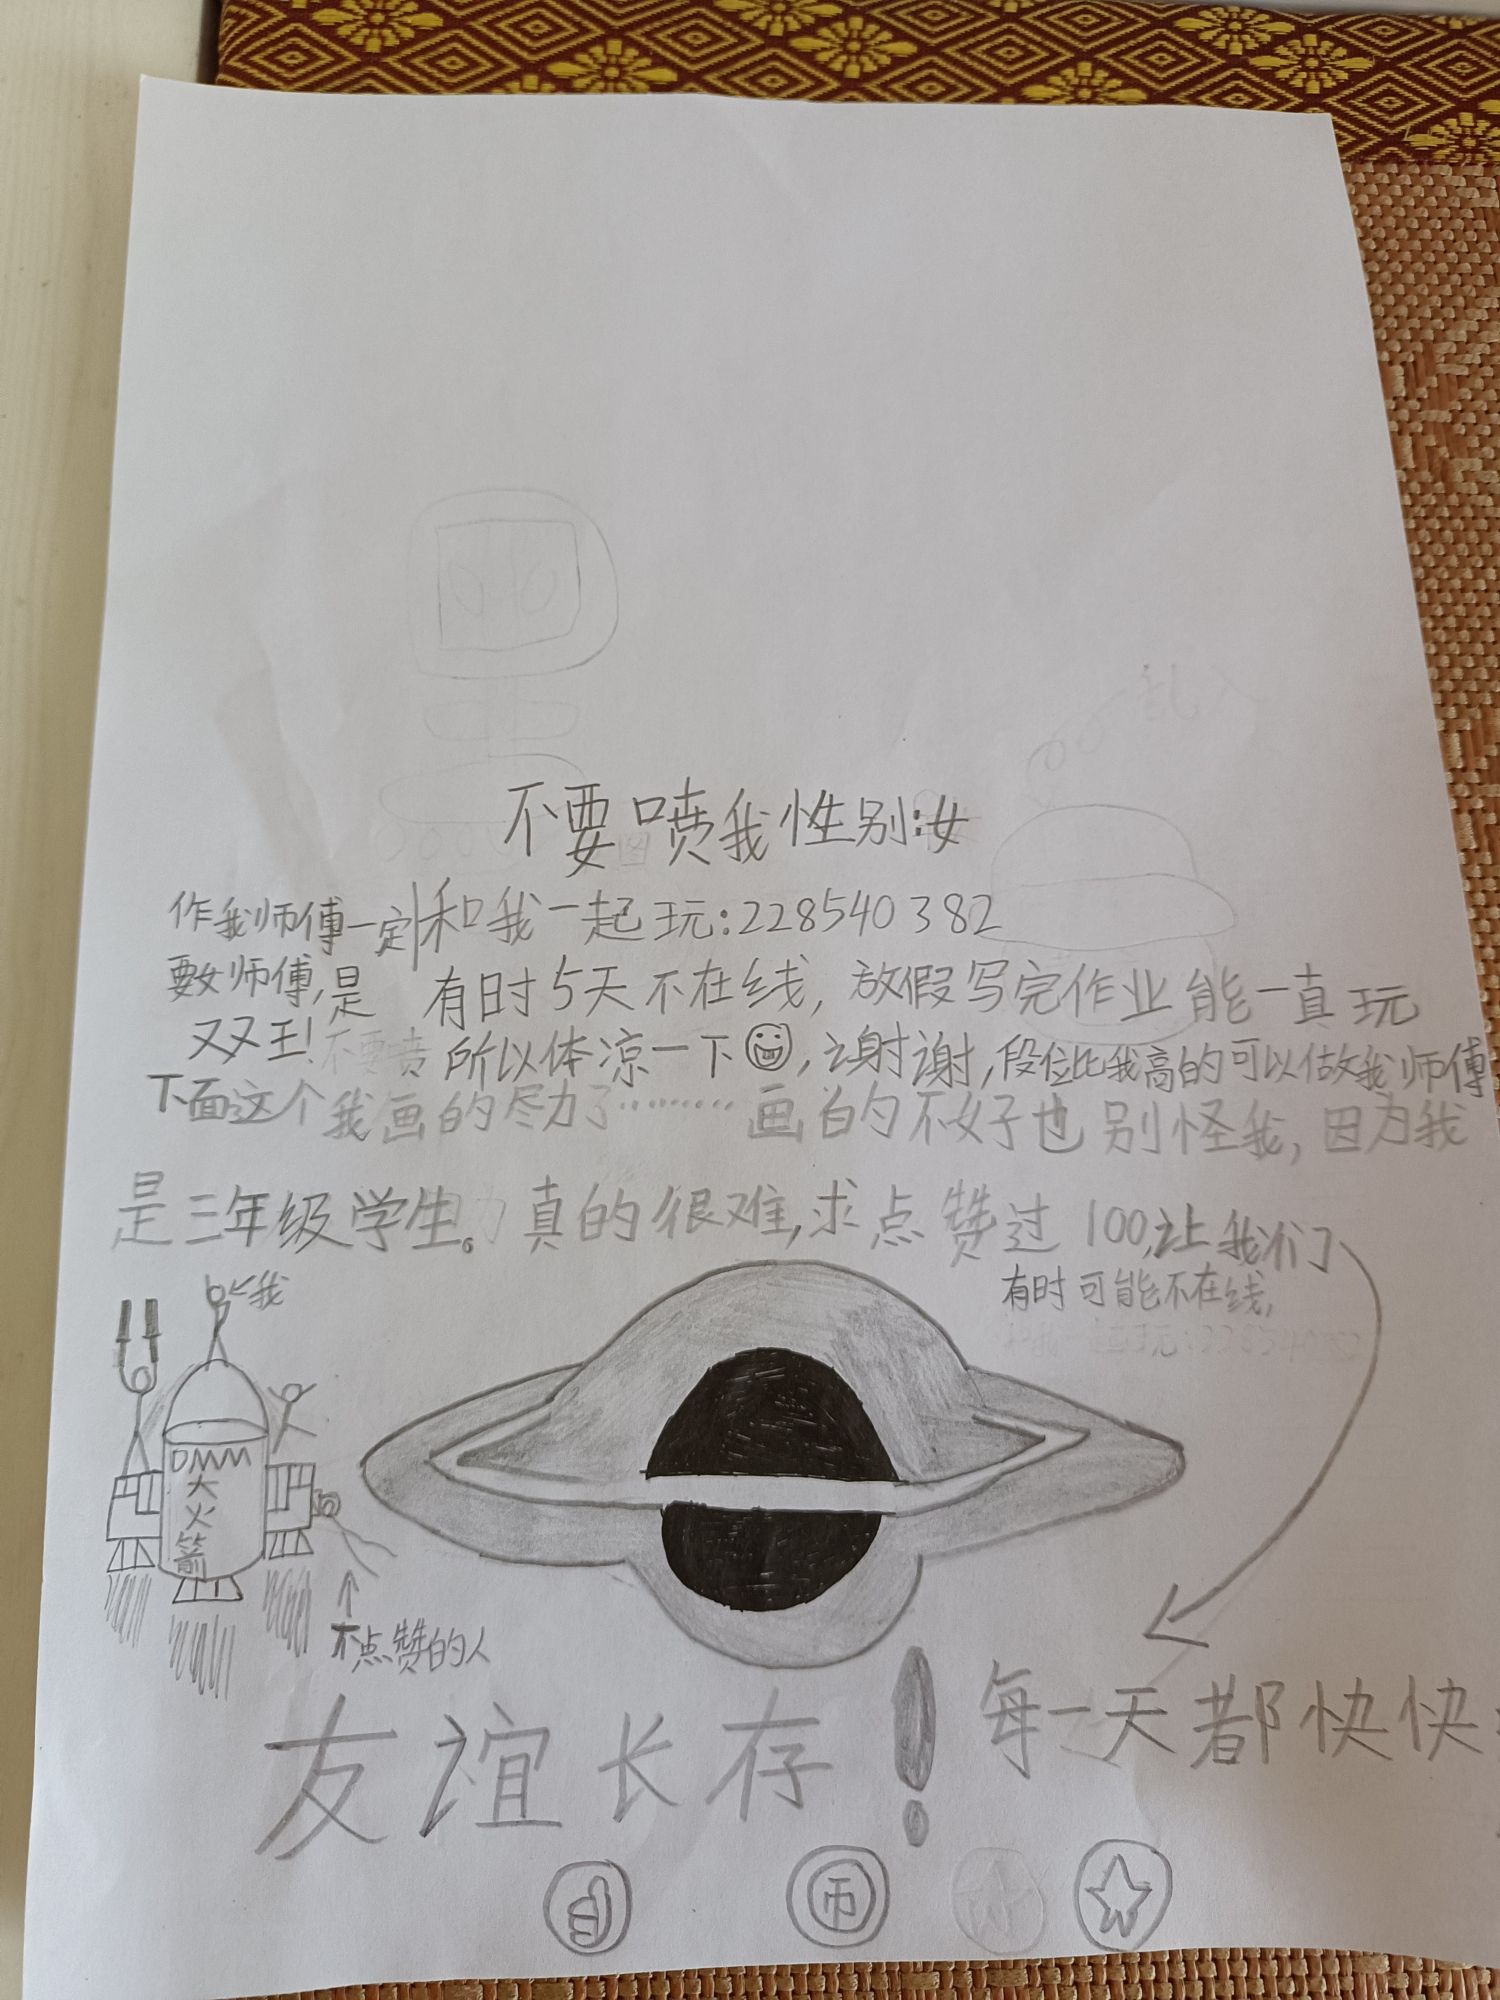 不要喷我性别:女
作我师傅一定
要女师傅,是
双双王!
和我一起玩:228540382
有时5天不在线,放假写完作业能一直玩
所以体凉一下,谢谢,段位比我高的可以做我师傅
不要责
下面这个我画的尽力了………画的不好也别怪我,因为我
是三年级学生。真的很难,求点赞过100,让我们
有时可能不在线,
我
DMM
大
火
箭
不点赞的人
友谊长存!
每一天都快快
币